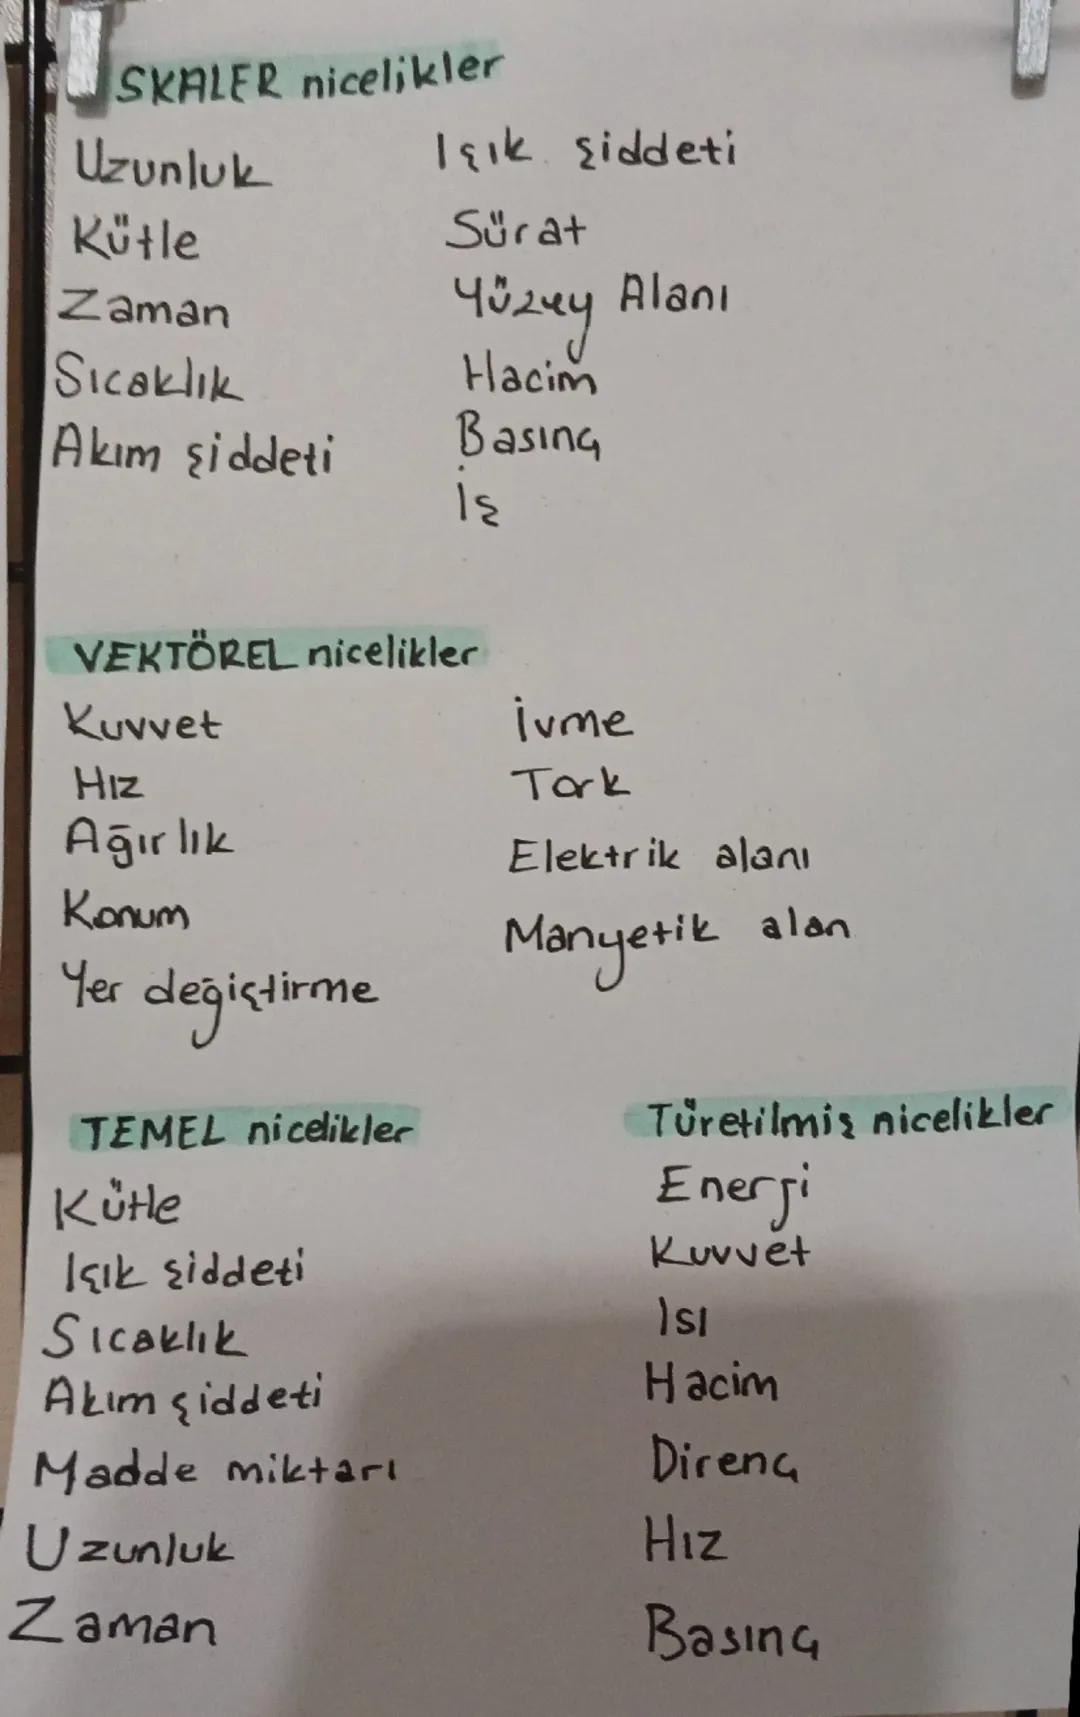 SKALER nicelikler
Uzunluk
Kütle
Zaman
Sıcaklık
Akım şiddeti
Işık şiddeti
Sürat
Yüzey Alanı
Hacim
Basınç
İş
VEKTÖREL nicelikler
Kuvvet
Hız
Ağırlık
Konum
Yer değiştirme
İvme
Tork
Elektrik alanı
Manyetik alan
TEMEL nicelikler
Kütle
Işık şiddeti
Sıcaklık
Akım şiddeti
Madde miktarı
Uzunluk
Zaman
Türetilmiş nicelikler
Enerji
Kuvvet
Isı
Hacim
Direnç
Hız
Basınç